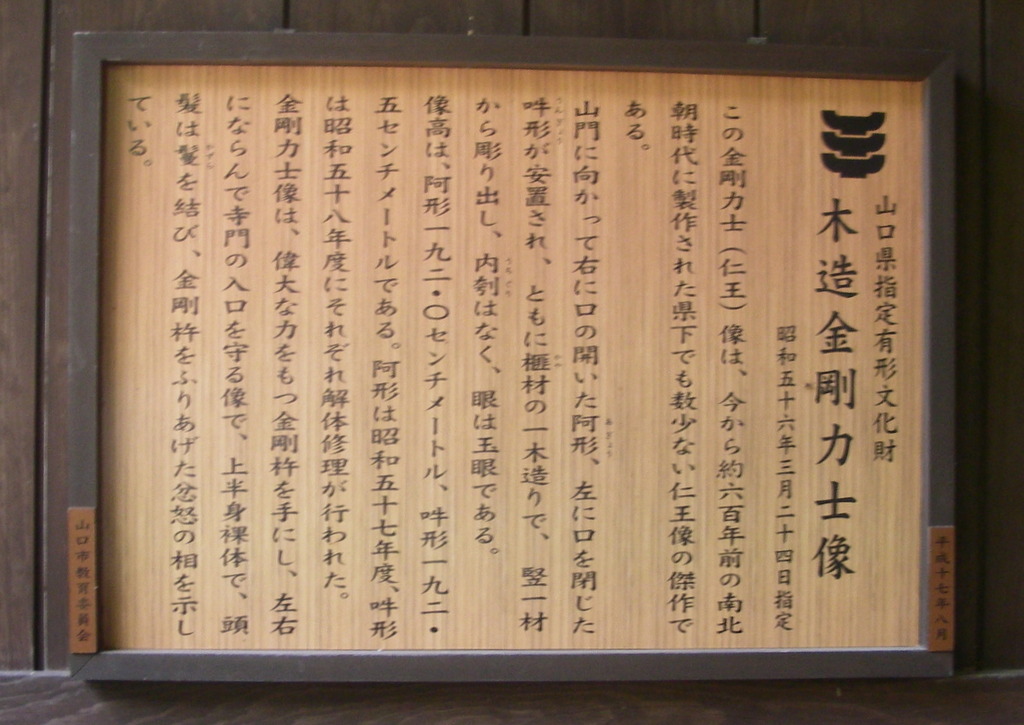 山口県指定有形文化財
木造金剛力士像
昭和五十六年三月二十四日指定
この金剛力士（仁王）像は、今から約六百年前の南北
朝時代に製作された県下でも数少ない仁王像の傑作で
ある。
山門に向かって右に口の開いた阿形、左に口を閉じた
あぎょう
吽形が安置され、ともに榧材の一木造りで、竪一材
うんぎょう
かや
から彫り出し、内刳はなく、眼は玉眼である。
うちぐり
像高は、阿形一九二・〇センチメートル、吽形一九二・
五センチメートルである。阿形は昭和五十七年度、吽形
は昭和五十八年度にそれぞれ解体修理が行われた。
金剛力士像は、偉大な力をもつ金剛杵を手にし、左右
にならんで寺門の入口を守る像で、上半身裸体で、頭
髪は髻を結び、金剛杵をふりあげた忿怒の相を示し
ている。
平成十七年八月
山口市教育委員会